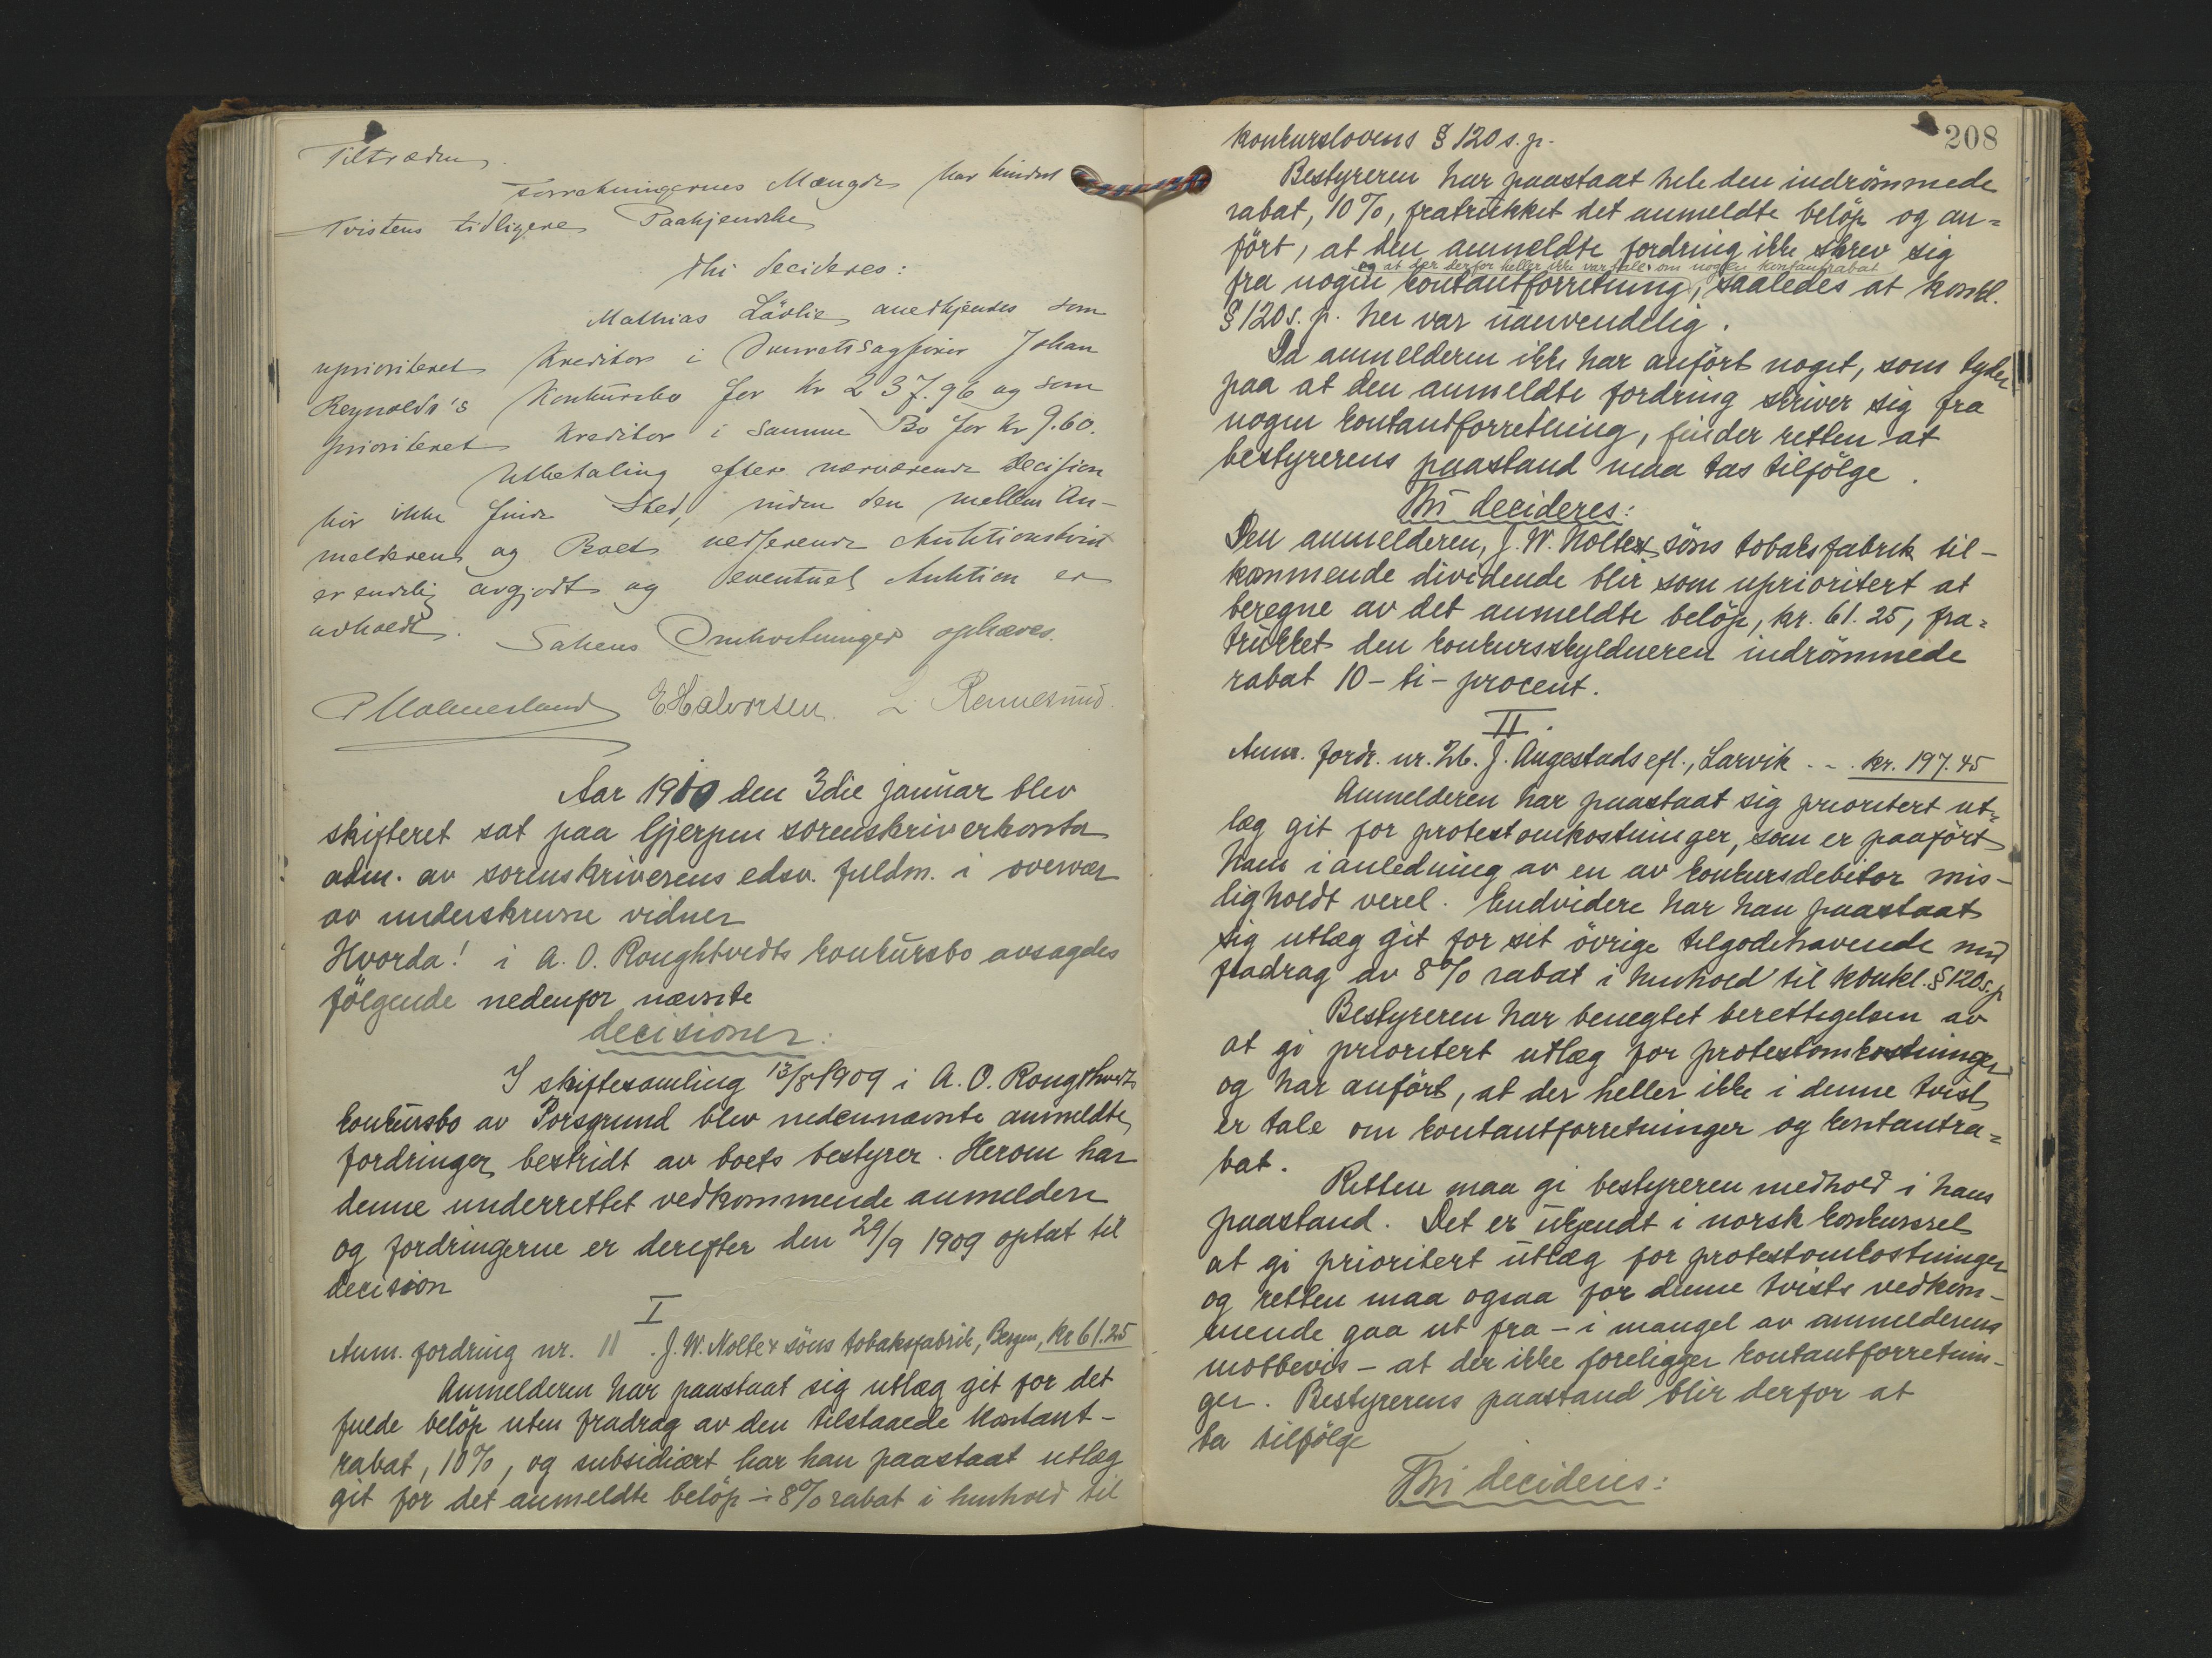 Tiltrædes.
Forretningernes Mængde har hindret
Tvistens tidligere Paakjendelse
Thi decideres:
Mathias Lövlie anerkjendes som
uprioriteret Kreditor i Overretssagfører Johan
Reynolds's Konkursbo for Kr 237.96 og som
prioriteret Kreditor i samme Bo for Kr 9.60.
Utbetaling efter nærværende Decision
bør ikke finde Sted, inden den mellem An-
melderen og Boet vedførende Auktionstvist
er endelig avgjort og eventuel Auktion er
avholdt.
Sakens Omkostninger ophæves.
P Malmerland E Halvorsen. L Rennesund.
Aar 1910 den 3die januar blev
skifteret sat paa Gjerpen sorenskriverkontor
adm. av sorenskriverens edsv. fuldm. i overvær
av underskrevne vidner
Hvorda! i A. O. Roughtvedts konkursbo avsagdes
følgende nedenfor nævnte
decisioner:
I skiftesamling 13/8 1909 i A. O. Rougthvedts
konkursbo av Porsgrund blev nedennævnte anmeldte
fordringer bestridt av boets bestyrer. Herom har
denne underrettet vedkommende anmeldere
og fordringerne er derefter den 29/9 1909 optat til
decision
I
Anm. fordring nr. 11. J. W. Nolte & söns tobaksfabrik, Bergen, kr 61.25
Anmelderen har paastaat sig utlæg git for det
fulde belöp uten fradrag av den tilstaaede kontant-
rabat, 10%, og subsidiært har han paastaat utlæg
git for det anmeldte belöp ÷ 8% rabat i henhold til
208
konkurslovens § 120 s. p.
Bestyreren har paastaat hele den indrömmede
rabat, 10%, fratrukket det anmeldte belöp og an=
fört, at den anmeldte fordring ikke skrev sig
og at der derfor heller ikke var tale om nogen kontantrabat
fra nogen kontantforretning, saaledes at konkl.
§ 120 s. p. her var uanvendelig.
Da anmelderen ikke har anfört noget, som tyder
paa at den anmeldte fordring skriver sig fra
nogen kontantforretning, finder retten at
bestyrerens paastand maa tas tilfölge.
Thi decideres:
Den anmelderen, J. W. Nolte & söns tobaksfabrik til-
kommende dividende blir som uprioritert at
beregne av det anmeldte belöp, kr. 61.25, fra=
trukket den konkursskyldneren indrömmede
rabat 10 - ti - procent.
II.
Anm. fordr. nr. 26. J. Angestads efl., Larvik - - . kr. 197.45
Anmelderen har paastaat sig prioritert ut=
læg git for protestomkostninger, som er paafört
ham i anledning av en av konkursdebitor mis-
ligholdt vexel. Endvidere har han paastaat
sig utlæg git for sit övrige tilgodehavende med
fradrag av 8% rabat i henhold til konkl. § 120 s. p
Bestyreren har benegtet berettigelsen av
at gi prioritert utlæg for protestomkostninger
og har anfört, at der heller ikke i denne tvist
er tale om kontantforretninger og kontantra=
bat.
Retten maa gi bestyreren medhold i hans
paastand. Det er ukjendt i norsk konkursret
at gi prioritert utlæg for protestomkostninger
og retten maa ogsaa for denne tvists vedkom-
mende gaa ut fra - i mangel av anmelderens
motbevis - at der ikke foreligger kontantforretnin-
ger. Bestyrerens paastand blir derfor at
ta tilfölge
Thi decideres: